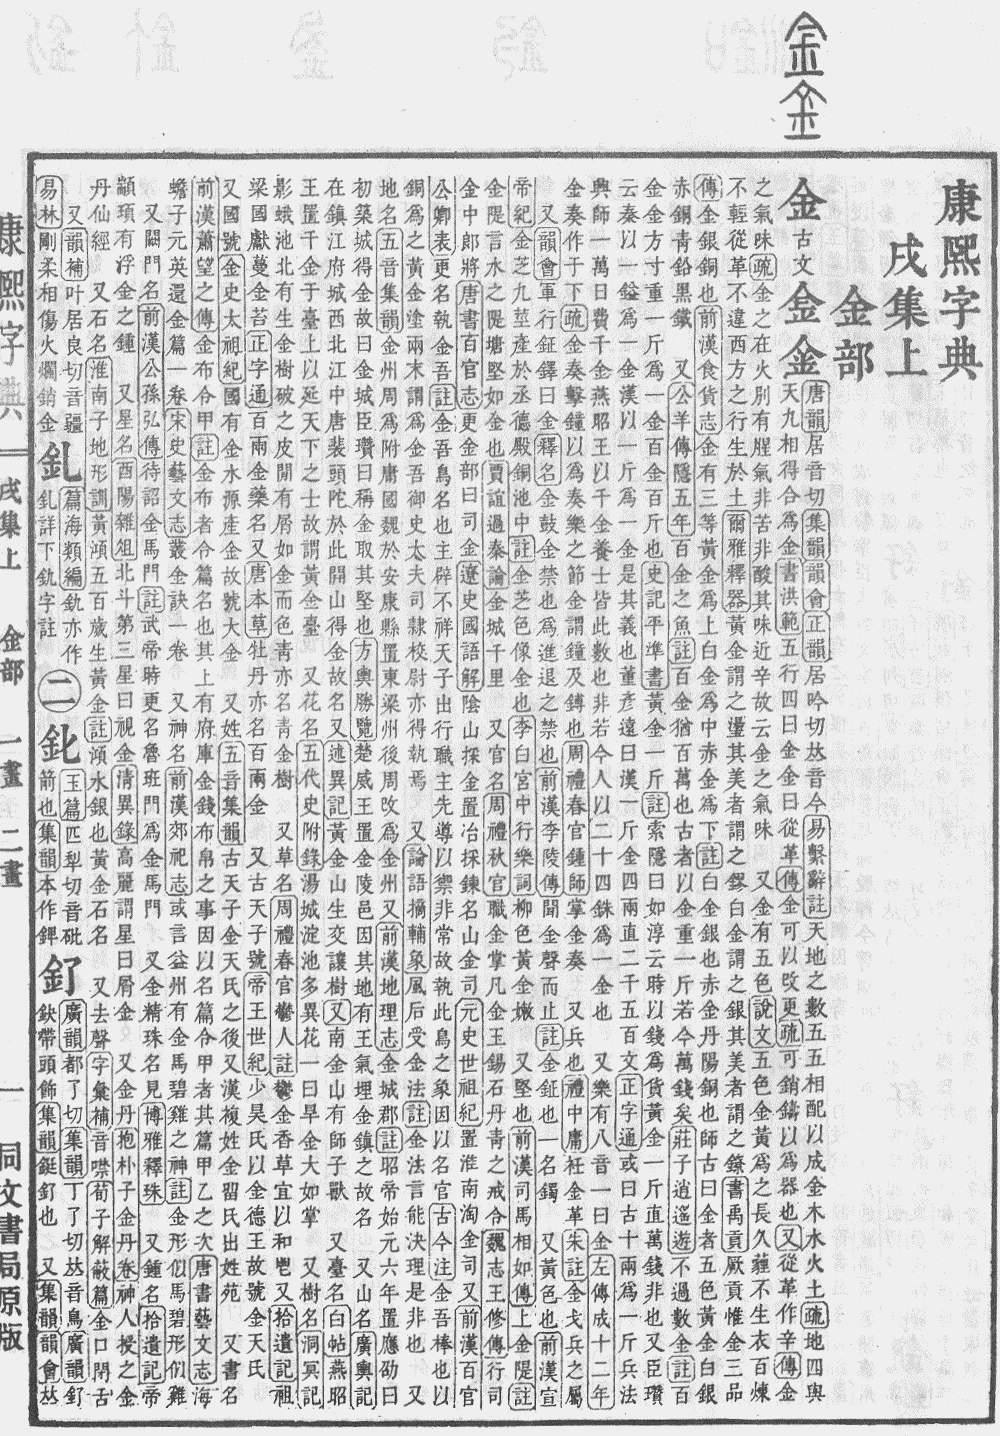 康熙字典
戌集上
金部
金古文𨤾金唐韻居音切集韻韻會正韻居吟切𠀤音今易繫辭註天地之數五五相配以成金木水火土疏地四與
天九相得合爲金書洪範五行四曰金金曰從革傳金可以改更疏可銷鑄以爲器也又從革作辛傳金
之氣味疏金之在火別有腥氣非苦非酸其味近辛故云金之氣味 又金有五色說文五色金黃爲之長久薶不生衣百煉
不輕從革不違西方之行生於土爾雅釋器黃金謂之璗其美者謂之鏐白金謂之銀其美者謂之鐐書禹貢厥貢惟金三品
傳金銀銅也前漢食貨志金有三等黃金爲上白金爲中赤金爲下註白金銀也赤金丹陽銅也師古曰金者五色黃金白銀
赤銅靑鉛黑鐵 又公羊傳隱五年百金之魚註百金猶百萬也古者以金重一斤若今萬錢矣莊子逍遙遊不過數金註百
金金方寸重一斤爲一金百金百斤也史記平準書黃金一斤註索隱曰如淳云時以錢爲貨黃金一斤直萬錢非也又臣瓚
云秦以一鎰爲一金漢以一斤爲一金是其義也董彥遠曰漢一斤金四兩直二千五百文正字通或曰古十兩爲一斤兵法
興師一萬日費千金燕昭王以千金養士皆此數也非若今人以二十四銖爲一金也 又樂有八音一曰金左傳成十二年
金奏作于下疏金奏擊鐘以爲奏樂之節金謂鐘及鎛也周禮春官鍾師掌金奏 又兵也禮中庸衽金革朱註金戈兵之屬
又韻會軍行鉦鐸曰金釋名金鼓金禁也爲進退之禁也前漢李陵傳聞金聲而止註金鉦也一名鐲 又黃色也前漢宣
帝紀金芝九莖產於丞德殿銅池中註金芝色像金也李白宮中行樂詞柳色黃金嫩 又堅也前漢司馬相如傳上金隄註
金隄言水之隄塘堅如金也賈誼過秦論金城千里 又官名周禮秋官職金掌凡金玉錫石丹靑之戒令魏志王修傳行司
金中郎將唐書百官志更金部曰司金遼史國語解陰山採金置冶採鍊名山金司元史世祖紀置淮南淘金司又前漢百官
公卿表更名執金吾註金吾鳥名也主辟不祥天子出行職主先導以禦非常故執此鳥之象因以名官古今注金吾棒也以
銅爲之黃金塗兩末謂爲金吾御史大夫司隸校尉亦得執焉 又論語摘輔象風后受金法註金法言能決理是非也 又
地名五音集韻金州周爲附庸國魏於安康縣置東梁州後周改爲金州又前漢地理志金城郡註昭帝始元六年置應劭曰
初築城得金故曰金城臣瓚曰稱金取其堅也方輿勝覽楚威王置金陵邑因其地有王氣埋金鎮之故名 又山名廣輿記
在鎮江府城西北江中唐裴頭陀於此開山得金故名又述異記黃金山生交讓樹又南金山有師子獸 又臺名白帖燕昭
王置千金于臺上以延天下之士故謂黃金臺 又花名五代史附錄湯城淀池多異花一曰旱金大如掌 又樹名洞冥記
影蛾池北有生金樹破之皮閒有屑如金而色靑亦名靑金樹 又草名周禮春官鬱人註鬱金香草宜以和鬯又拾遺記祖
梁國獻蔓金苔正字通百兩金藥名又唐本草牡丹亦名百兩金 又古天子號帝王世紀少昊氏以金德王故號金天氏
又國號金史太祖紀國有金水源產金故號大金 又姓五音集韻古天子金天氏之後又漢複姓金習氏出姓苑 又書名
前漢蕭望之傳金布令甲註金布者令篇名也其上有府庫金錢布帛之事因以名篇令甲者其篇甲乙之次唐書藝文志海
蟾子元英還金篇一卷宋史藝文志叢金訣一卷 又神名前漢郊祀志或言益州有金馬碧雞之神註金形似馬碧形似雞
又闢門名前漢公孫弘傳待詔金馬門註武帝時更名魯班門爲金馬門 又金精珠名見博雅釋珠 又鍾名拾遺記帝
顓頊有浮金之鍾 又星名酉陽雜俎北斗第三星曰視金淸異錄高麗謂星曰屑金 又金丹抱朴子金丹卷神人授之金
丹仙經 又石名淮南子地形訓黃澒五百歲生黃金註澒水銀也黃金石名 又去聲字彙補音噤荀子解蔽篇金口閉舌
又韻補叶居良切音疆
易林剛柔相傷火爛銷金 釓篇海類編釚亦作釓詳下釚字註 二 鈚玉篇匹犁切音砒箭也集韻本作錍 釕廣韻都了切集韻丁了切𠀤音鳥廣韻釕鈌帶頭飾集韻鋌釕也 又集韻韻會𠀤
康熙字典 戌集上 金部 一畫 二畫 一 同文書局原版